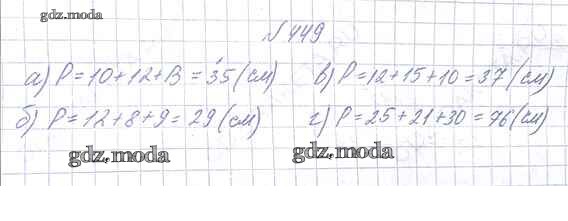 gdz.moda
№449
а) P=10+12+13=35(см) в) P=12+15+10=37(см)
б) P=12+8+9=29(см) г) P=25+21+30=76(см)
gdz.moda gdz.moda